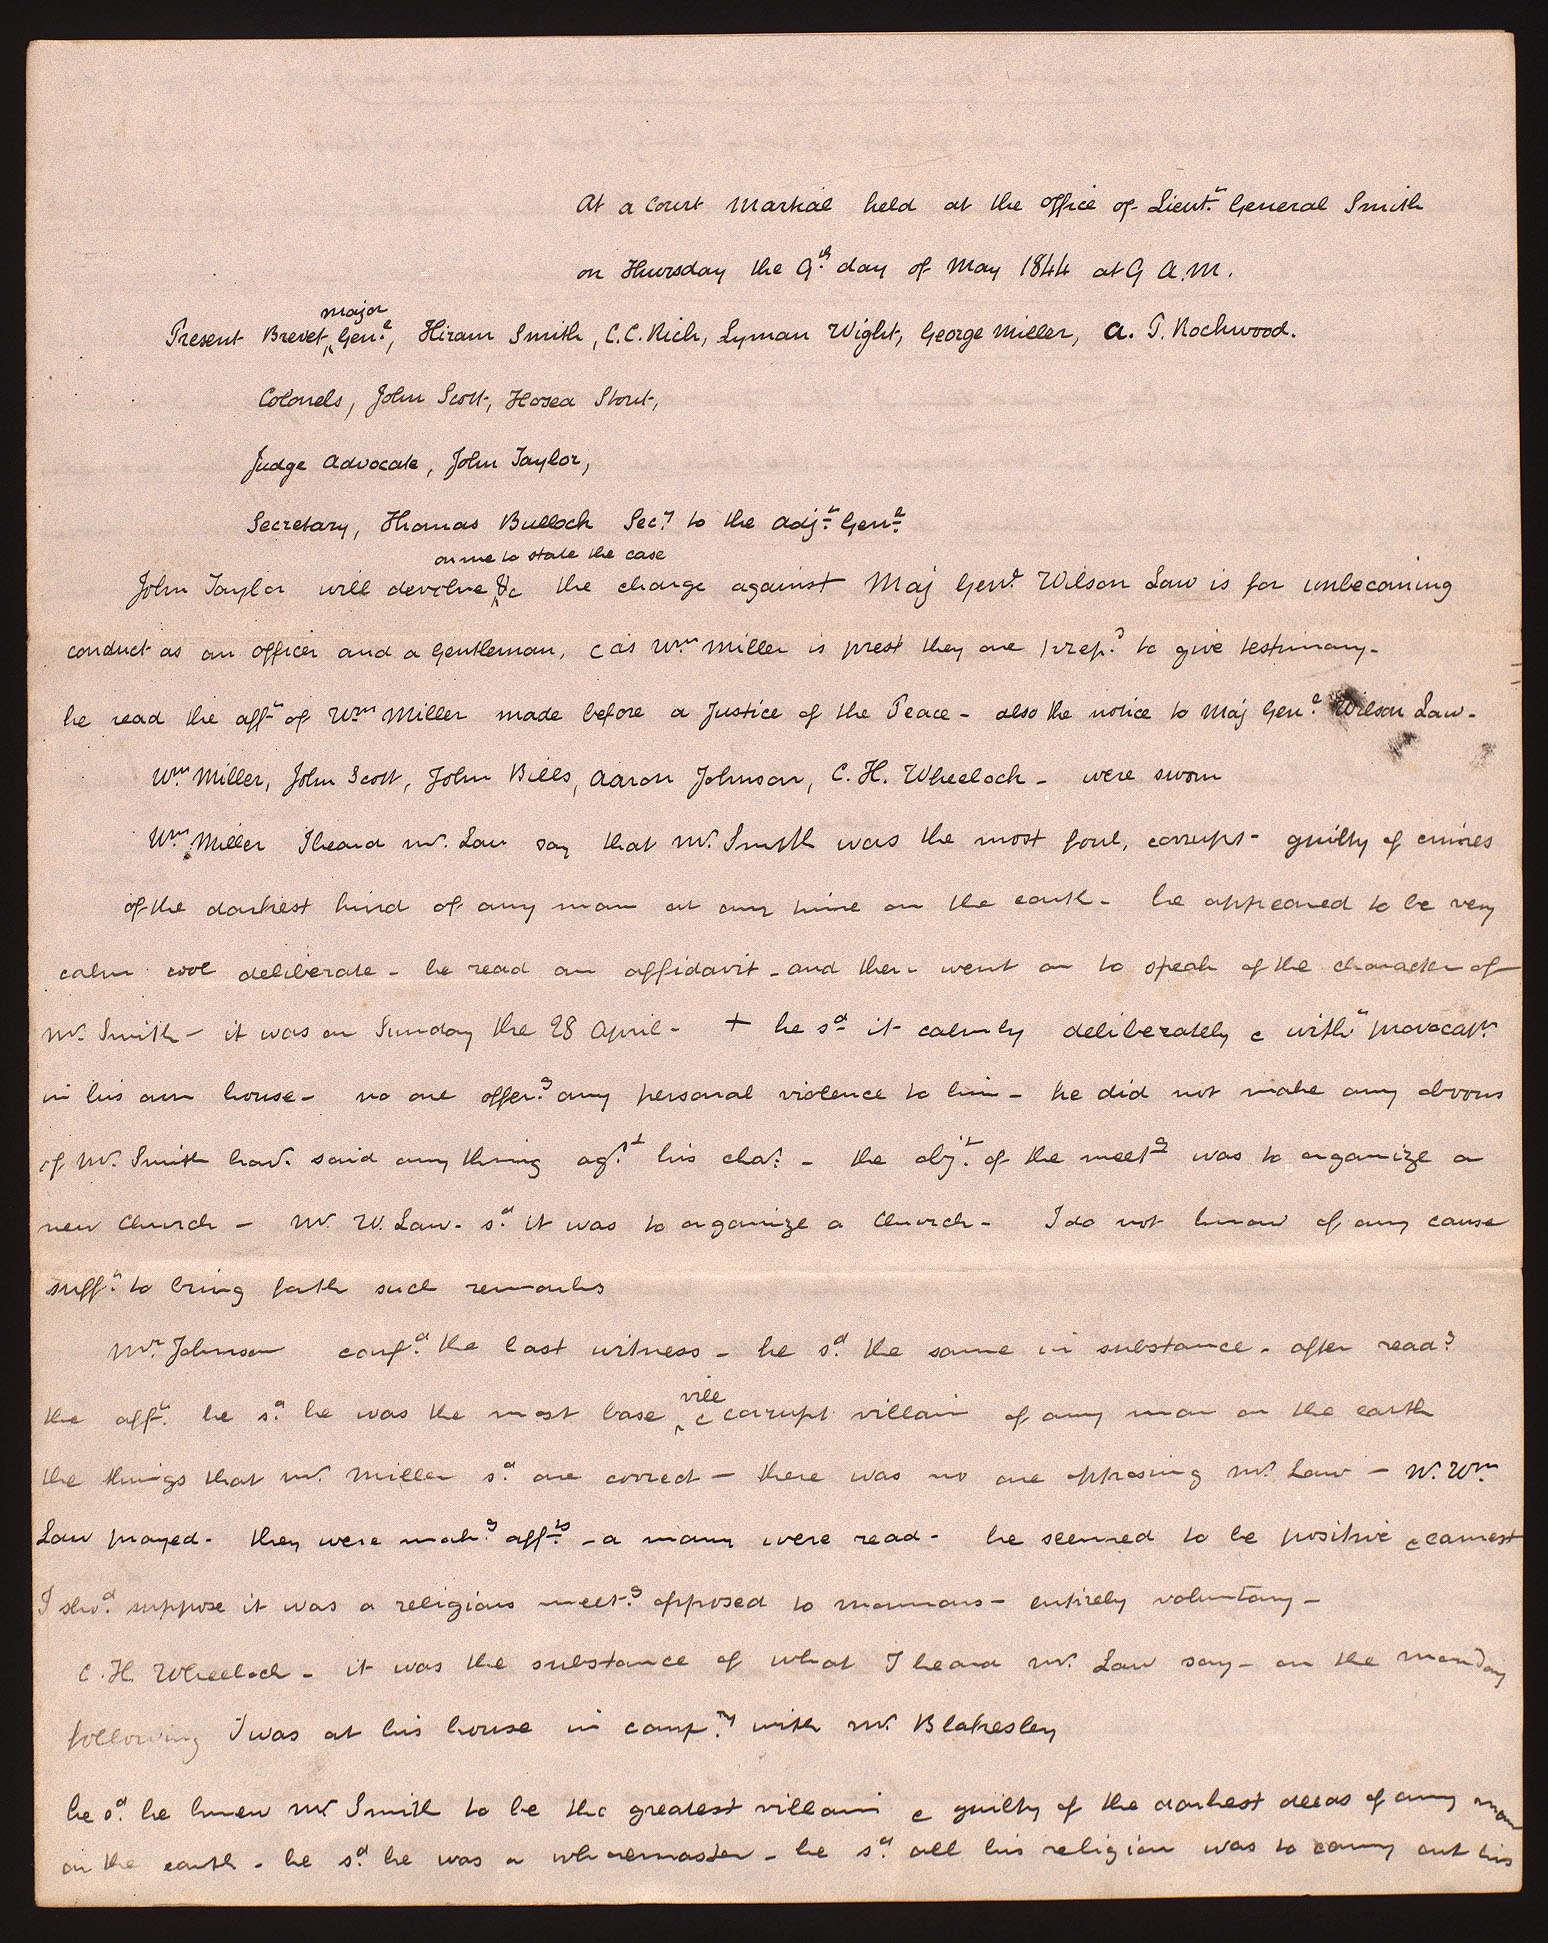 At a Court Martial held at the office of Lieut.t General Smith
on Thursday the 9.th day of May 1844 at 9 A.M.
major
Present Brevet ^ Gen.l, Hiram Smith, C.C. Rich, Lyman Wight, George Miller, A. P. Rockwood.
Colonels, John Scott, Hosea Stout,
Judge Advocate, John Taylor,
Secretary, Thomas Bullock Sec.y to the Adj.t Gen.l
on me to state the case
John Taylor will devolve ^ &c the charge against Maj Gen.l Wilson Law is for unbecoming
conduct as an officer and a gentleman, & as W.m Miller is prest they are prep.d to give testimony -
he read the aff.t of W.m Miller made before a Justice of the Peace - also the notice to Maj Gen.l Wilson Law -
W.m Miller, John Scott, John Bills, Aaron Johnson, C. H. Wheelock - were sworn
W.m Miller I heard Mr. Law say that Mr. Smith was the most foul, corrupt - guilty of crimes
of the darkest kind of any man at any time on the earth - he appeared to be very
calm cool deliberate - he read an affidavit - and then went on to speak of the character of
Mr. Smith - it was on Sunday the 28 April - + he s.d it calmly deliberately & with.t provocat.n
in his own house - no one offer.g any personal violence to him - he did not make any
of Mr. Smith hav.g said any thing ag.st his cha.r - the obj.t of the meet.g was to organize a
new Church - Mr. W. Law - s.d it was to organize a Church - I do not know of any cause
suff.t to bring forth such remarks
Mr. Johnson conf.d the last witness - he s.d the same in substance - after read.g
vile
the aff.t he s.d he was the most base ^ & corrupt villain of any man on the earth
the things that Mr. Miller s.d are correct - there was no one opposing Mr. Law - W. W.m
Law prayed - they were mak.g aff.ts - a many were read - he seemed to be positive & earnest
I sho.d suppose it was a religious meet.g opposed to mormons - entirely voluntary -
C. H. Wheelock - it was the substance of what I heard Mr. Law say - on the monday
following I was at his house in comp.y with Mr. Blakesley
he s.d he knew Mr Smith to be the greatest villain & guilty of the darkest deeds of any man
on the earth - he s.d he was a whoremaster - he s.d all his religion was to carry out his